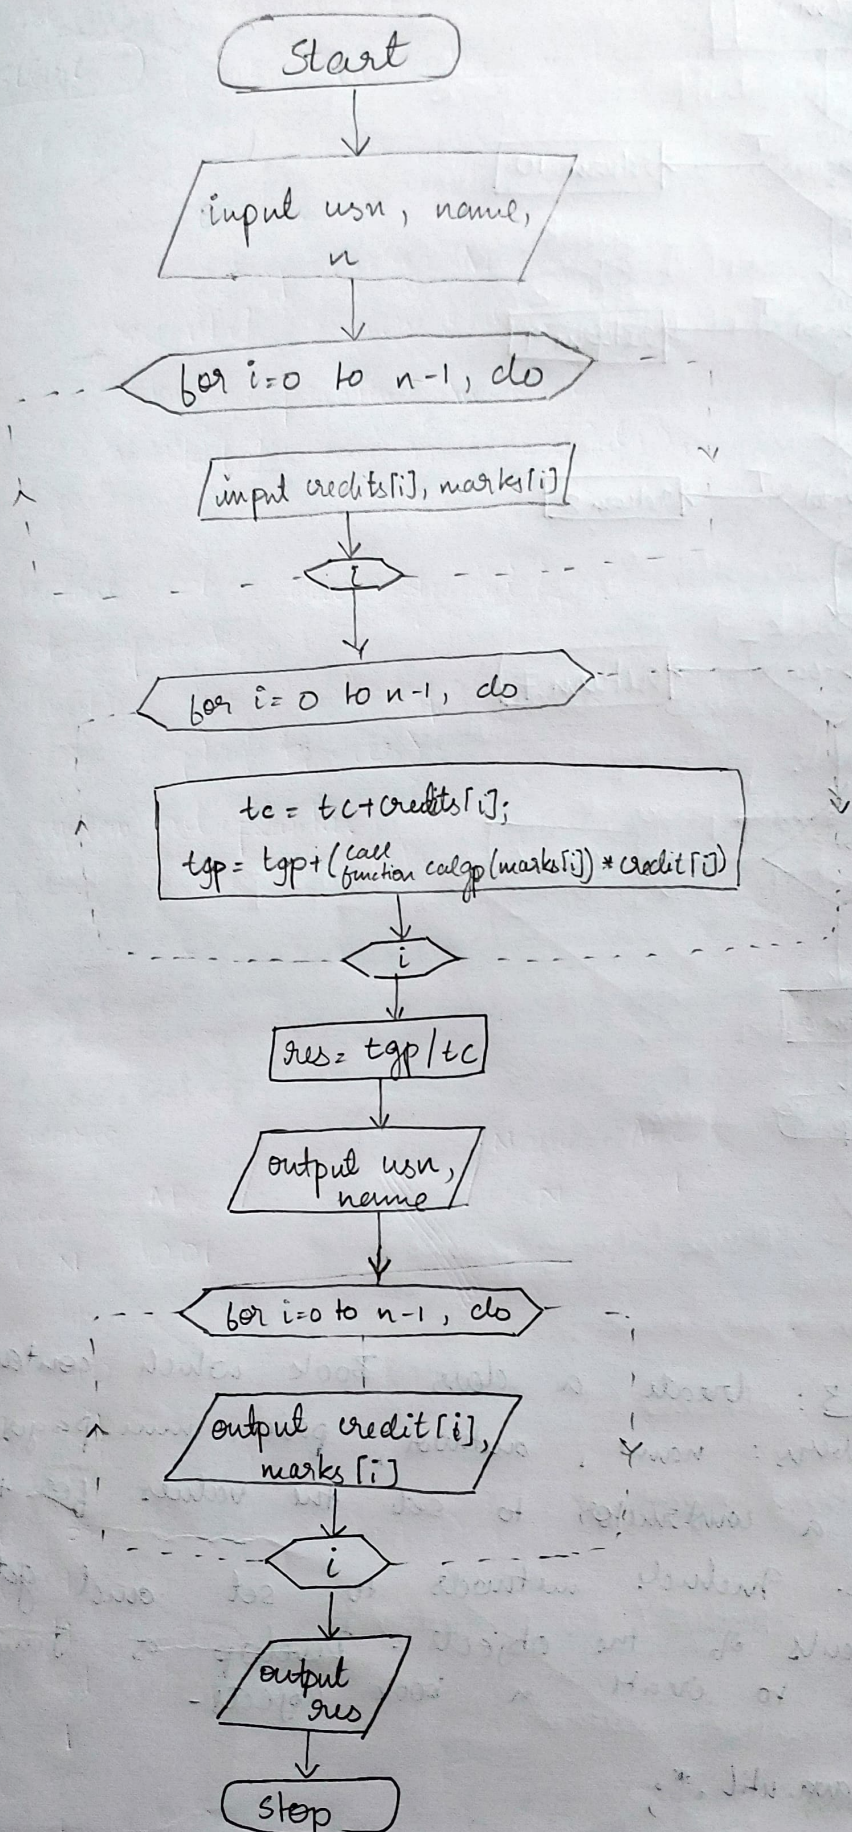 Start
input usn, name,
n
for i=0 to n-1, do
input credits[i], marks[i]
i
for i=0 to n-1, do
tc = tc+credits[i];
tgp = tgp+(call function calgp(marks[i])*credit[i])
i
res= tgp/tc
output usn,
name
for i=0 to n-1, do
output credit[i],
marks[i]
i
output
res
stop